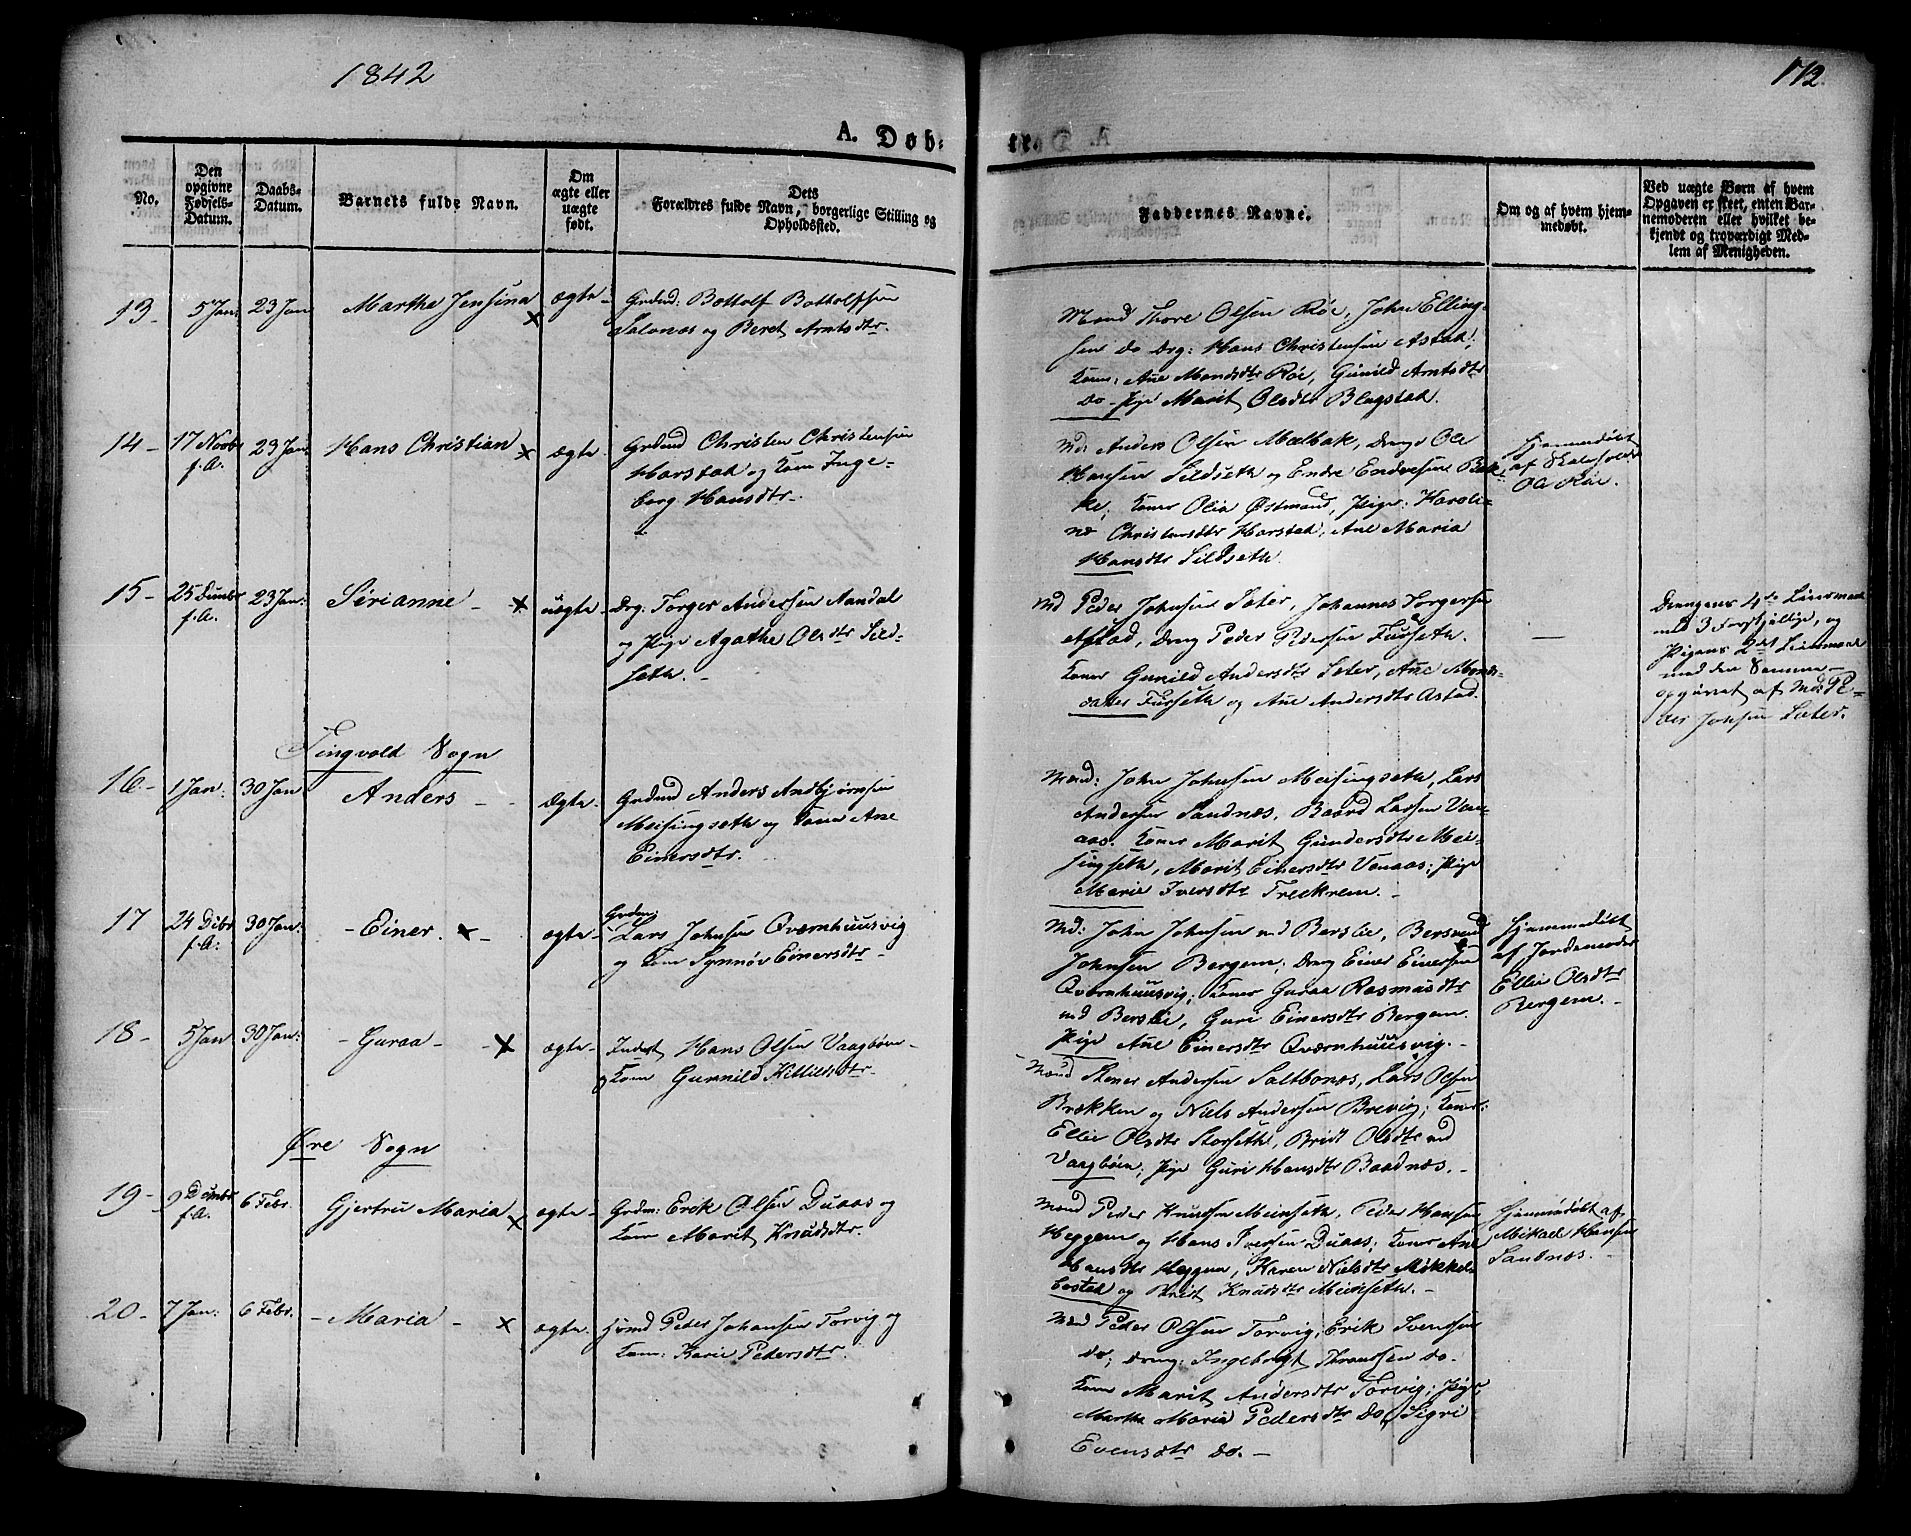 1842
172.
A. Døb-
te.
No.
Den opgivne Fødsels-Datum.
Daabs-Datum.
Barnets fulde Navn.
Om ægte eller uægte født.
Dets Forældres fulde Navn, borgerlige Stilling og Opholdssted.
Faddernes Navne.
Om og af hvem hjem-
medøbt.
Ved uægte Børn af hvem
Opgaven er skeet, enten Bar-
nemoderen eller hvilket be-
kjendt og troværdigt Med-
lem af Menigheden.
13 - 5 Jan: 23 Jan Marthe Jensina x ægte - Grdmd: Bottolf Bottolfsen
Salonæs og Beret Arntsdtr.
Mænd Thore Olsen Røe, John Elling-
sen do Drg: Hans Christensen Astad;
Koner: Ane Monsdtr Røe, Gunild Arntsdtr
do - Pige Marit Olsdtr Blegstad.
14 - 17 Novbr f.A. 23 Jan Hans Christian x ægte. Grdmd Christen Christensen
Harstad og Kone Inge-
borg Hansdtr.
Md: Anders Olsen Mælbak, Drenge Ole
Hansen Sildseth og Endre Endresen Bak-
ke; Koner Olia Østmand, Piger: Haroli-
ne Christensdtr Harstad, Ane Maria
Hansdtr Sildseth.
Hjemmedøbt
af Skoleholder
Ole Røe.
15 - 25 Decmbr f.A. 23 Jan: Sirianne - x uægte - Drg: Torger Andersen Aandal
og Pige Agathe Olsdtr Sild-
seth. -
Md Peder Johnsen Sæter, Johannes Torgersen
Astad, Dreng Peder Pedersen Furseth.
Koner Gunild Andersdtr Sæter, Ane Mons-
datter Furseth og Ane Andersdtr Astad.
Drengens 4de Leiermaal
med 3 Forskjellige, og
Pigens 2det Leiermaal
med den Samme -
opgivet af Md Pe-
der Johnsen Sæter.
Tingvold Sogn
16 - 1 Jan: 30 Jan Anders - - Ægte - Grdmd Anders Andbjørnsen
Meisingseth og Kone Ane
Einersdtr.
Mænd: John Johnsen Meisingseth, Lars
Andersen Sandnæs, Baard Larsen Van-
aas. Koner Marit Gundersdtr Mei-
singseth, Marit Einersdtr Vanaas; Pige
Marie Iversdtr Treekrem. -
17 24 Dcbr f.A. 30 Jan: - Einer. x - ægte - Grdm: Lars Johnsen Qværnhuusvig
og Kone Synnøv Einersdtr -
Md: John Johnsen nd Berslie, Bersvend
Johnsen Bergem; Dreng Einer Einersen
Qværnhuusvig; Koner Guraa Rasmusdtr
nd Berslie, Guri Einersdtr Bergem.
Pige Ane Einersdtr Qværnhuusvig. -
Hjemmedøbt
af Jordemoder
Ellie Olsdtr
Bergem. -
18 - 5 Jan 30 Jan: - Guraa - - x ægte - Inderst Hans Olsen Vaagbøen -
og Kone Gunnild Kittilsdtr -
Mænd Stener Andersen Saltbonæs, Lars Olsen
Brækken og Niels Andersen Brevig; Koner:
Ellie Olsdtr Storseth, Bridt Olsdtr nd
Vaagbøen; Pige Guri Hansdtr Baadnæs. -
Øre Sogn
19 - 9 Decmbr f.A. 6 Febr. Gjertru Maria x ægte - Grdm: Erik Olsen Duaas og
Kone Marit Knudsdtr.
Mænd Peder Knudsen Meinseth, Peder Hansen
Heggem og Hans Iversen Duaas; Koner Ane
Hansdtr Heggem, Karen Nielsdtr Mikkel-
bostad og Brit Knudsdtr Meinseth. -
Hjemmedøbt af
Mikael Hansen
Sandnæs. -
20 - 7 Jan: 6 Febr. - Maria - x ægte. Husmd Peder Johansen Torvig og
Kone: Karie Pedersdtr.
Mænd Peder Olsen Torvig, Erik Svendsen
do; Dreng: Ingebrigt Thronsen do.
Koner Marit Andersdtr Torvig; Piger
Marthe Maria Pedersdtr do, Sigri
Evensdtr do. -